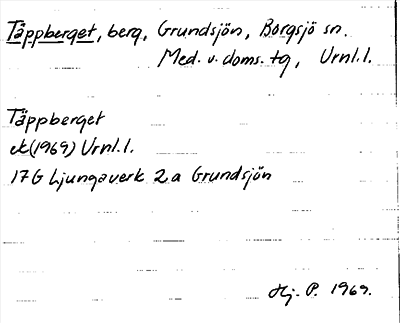 Täppberget, berg, Grundsjön, Borgsjö sn.
Med. v. doms. tg, Urnl.l.
Täppberget
ek (1969) Urnl.l.
17G Ljungaverk 2a Grundsjön
Hj. P. 1969.